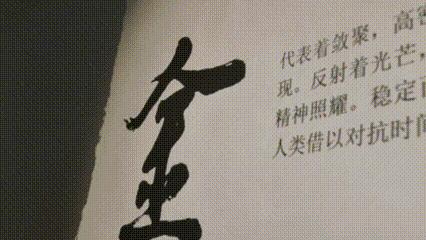 金
代表着敛聚，高密
现。反射着光芒，
精神照耀。稳定而
人类借以对抗时间